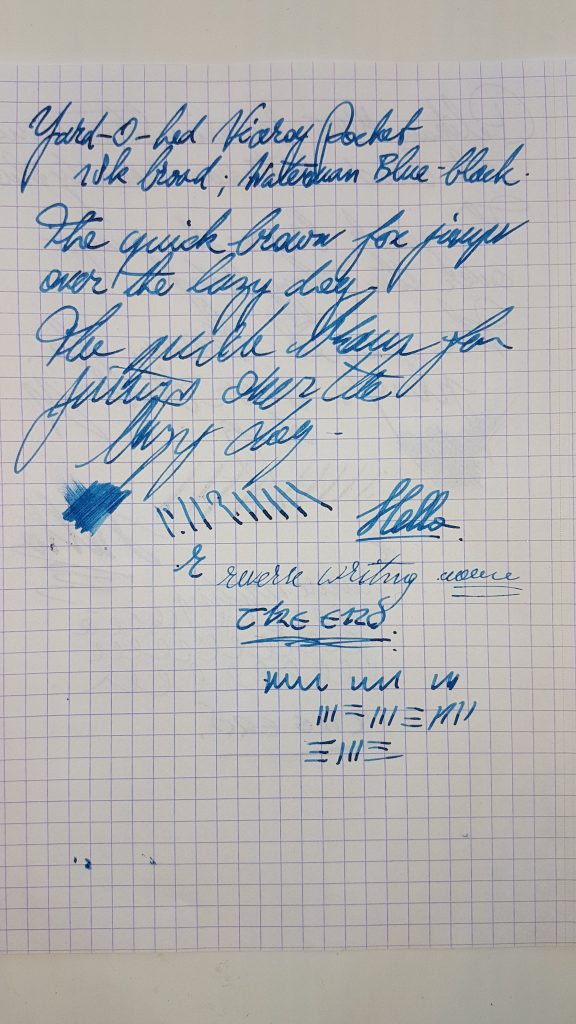 Yard-O-Led Viceroy Pocket
18k broad; Waterman Blue-black.
The quick brown fox jumps
over the lazy dog.
The quick brown fox
jumps over the
lazy dog -
Hello.
r reverse writing
THE END.